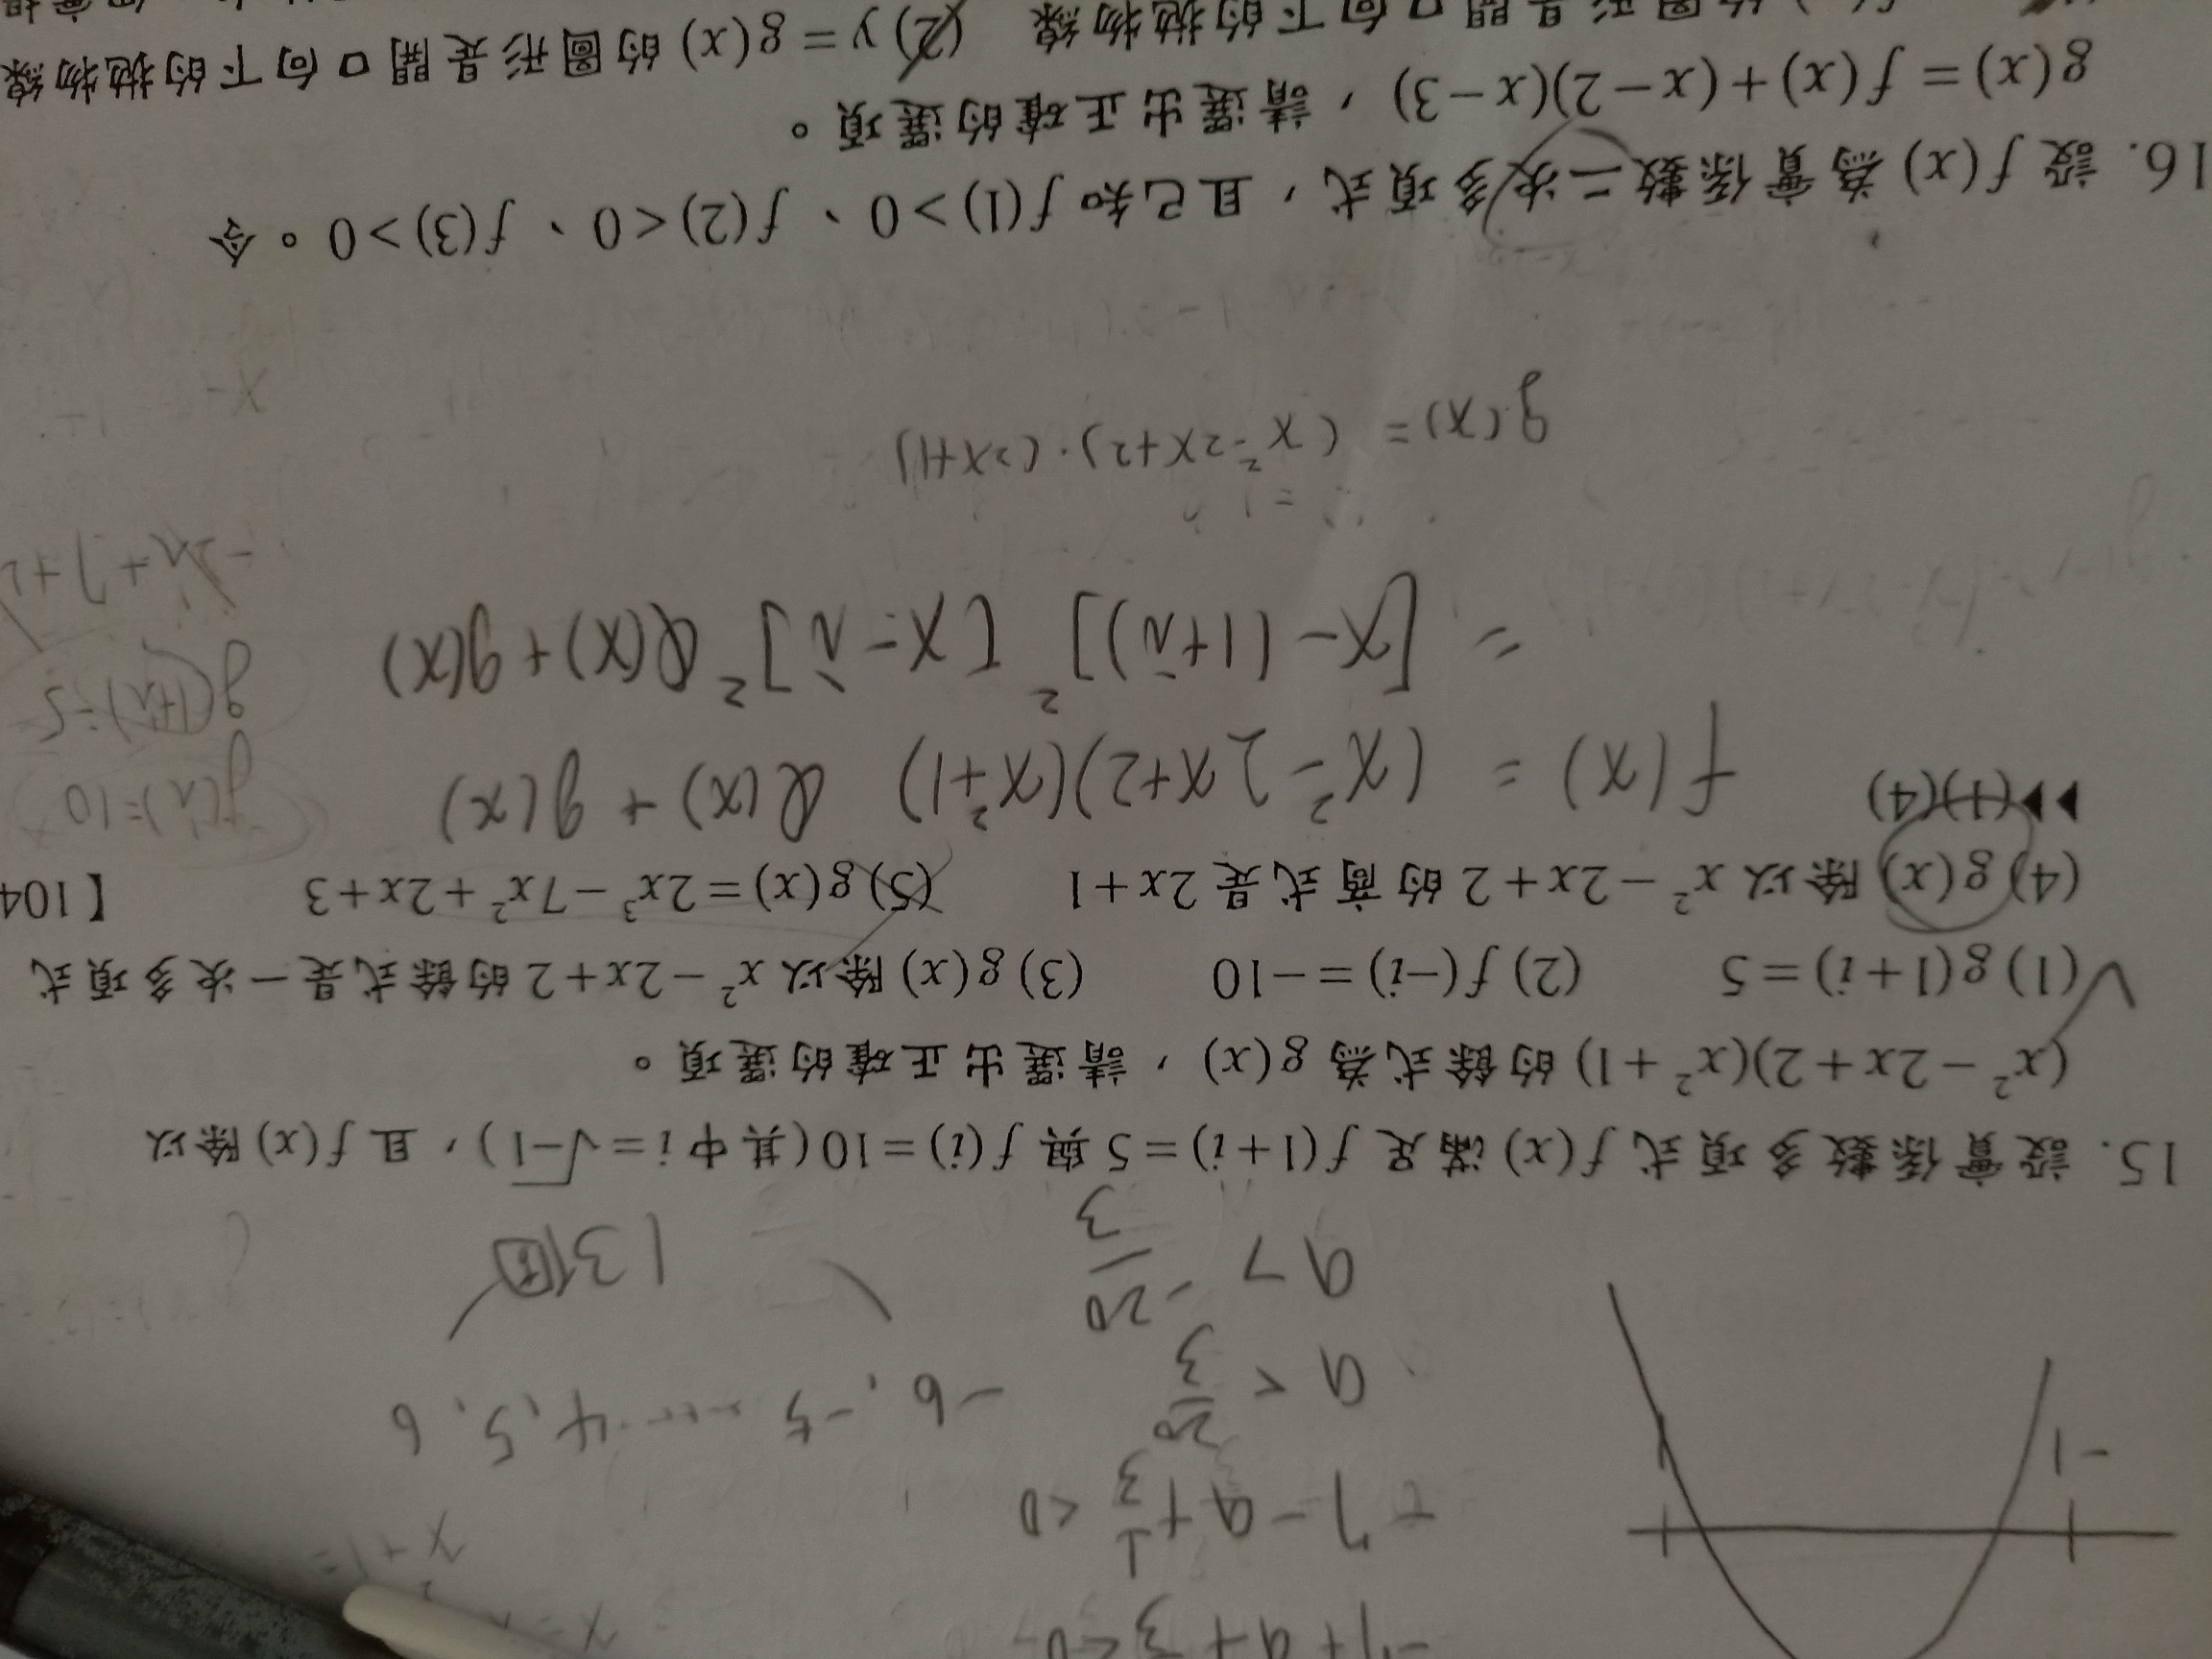 -7+a+3<0
-7-a+1/3<0
a<20/3
-6,-5……4,5,6
a>-20/3
13個
-1
15. 設實係數多項式 f(x) 滿足 f(1+i)=5 與 f(i)=10(其中 i=√-1),且 f(x) 除以
(x²-2x+2)(x²+1) 的餘式為 g(x),請選出正確的選項。
(1) g(1+i)=5 (2) f(-i)=-10 (3) g(x) 除以 x²-2x+2 的餘式是一次多項式
(4) g(x) 除以 x²-2x+2 的商式是 2x+1 (5) g(x)=2x³-7x²+2x+3 【104
▶▶(1)(4)
f(x) = (x²-2x+2)(x²+1) Q(x)+g(x)
g(i)=10
= [x-(1+i)]² [x-i]² Q(x)+g(x)
g(1+i)=5
g(x) = (x²-2x+2)·(2x+1)
x-
16. 設 f(x) 為實係數二次多項式,且已知 f(1)>0、f(2)<0、f(3)>0。令
g(x)=f(x)+(x-2)(x-3),請選出正確的選項。
的圖形是開口向下的拋物線 (2) y=g(x) 的圖形是開口向下的拋物線